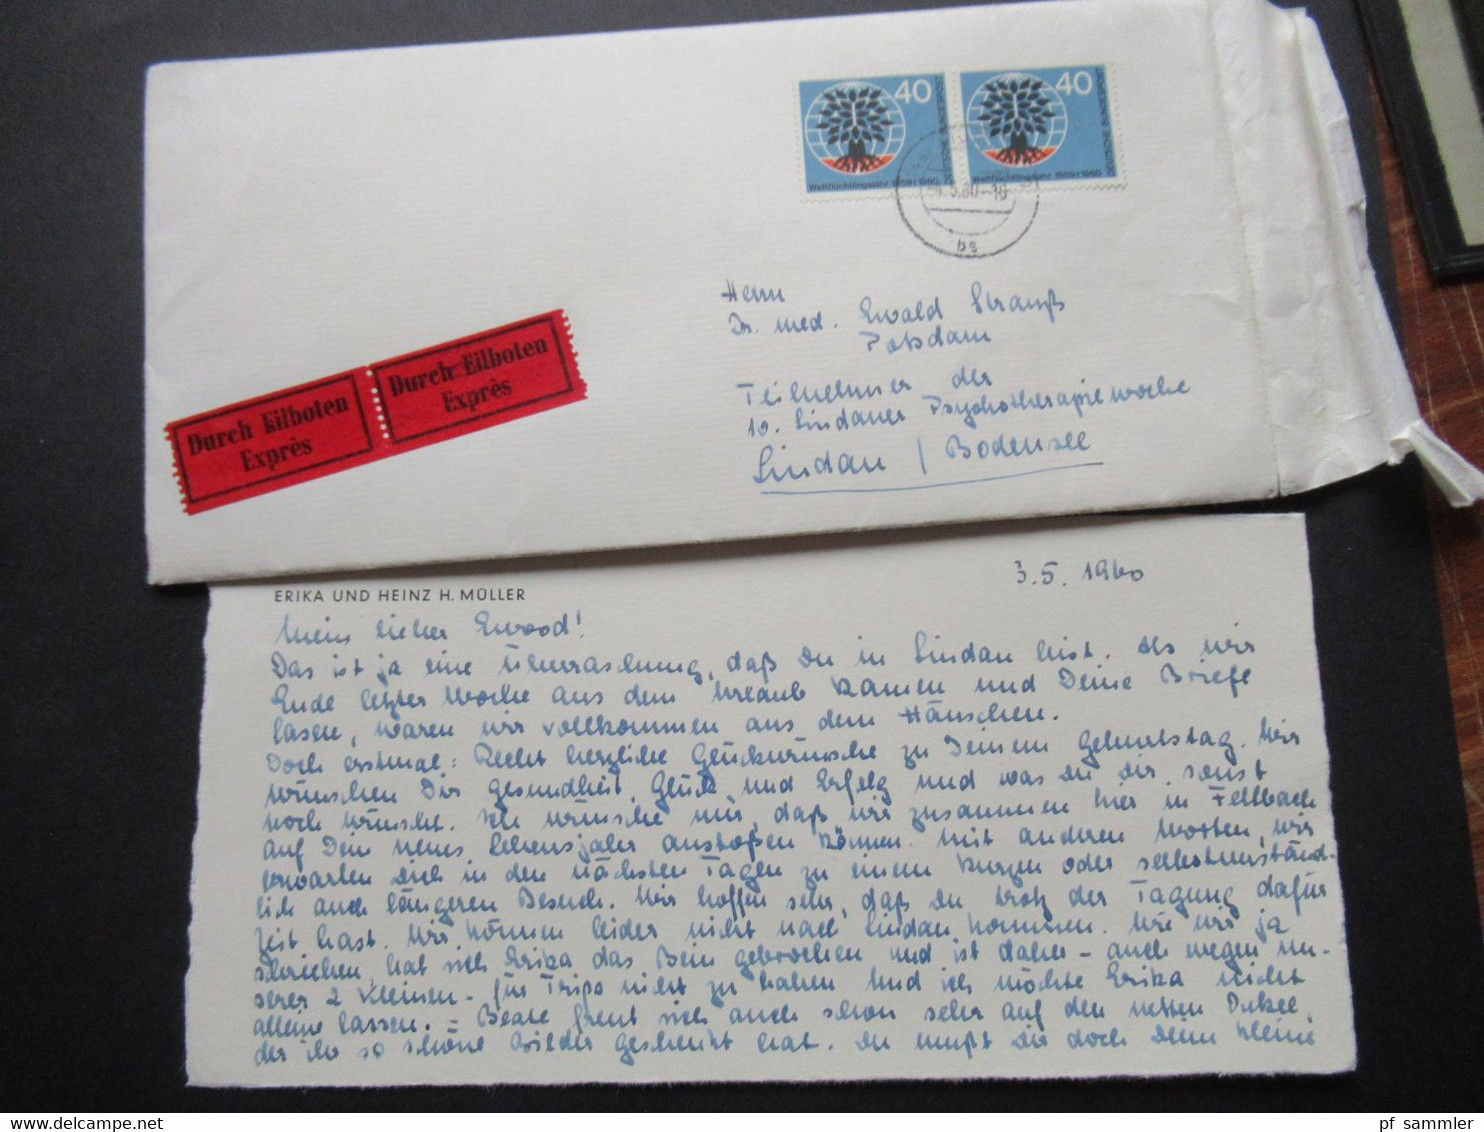 40
40
DEUTSCHE BUNDESPOST
DEUTSCHE BUNDESPOST
Weltflüchtlingsjahr 1959/1960
Weltflüchtlingsjahr 1959/1960
5.60-10
bs
Durch Eilboten
Exprès
Durch Eilboten
Exprès
Herrn
Dr. med. Ewald Strauß
Potsdam
Teilnehmer der
10. Lindauer Psychotherapiewoche
Lindau / Bodensee
3.5.1960
ERIKA UND HEINZ H. MÜLLER
Mein lieber Ewald!
Das ist ja eine Überraschung, daß Du in Lindau bist. Als wir
Ende letzter Woche aus dem Urlaub kamen und Deine Briefe
lasen, waren wir vollkommen aus dem Häuschen.
Doch erstmal: Recht herzliche Glückwünsche zu Deinem Geburtstag. Wir
wünschen Dir Gesundheit, Glück und Erfolg und was Du Dir sonst
noch wünscht. Ich wünsche mir, daß wir zusammen hier in Fellbach
auf Dein neues Lebensjahr anstoßen können. Mit anderen Worten, wir
erwarten Dich in den nächsten Tagen zu einem kurzen oder selbstverständ-
lich auch längeren Besuch. Wir hoffen sehr, daß Du trotz der Tagung dafür
Zeit hast. Wir können leider nicht nach Lindau kommen. Wie wir ja
schrieben, hat sich Erika das Bein gebrochen und ist daher - auch wegen un-
serer 2 Kleinen - für Trips nicht zu haben und ich möchte Erika nicht
alleine lassen. = Beate freut sich auch schon sehr auf den netten Onkel,
der ihr so schöne Bilder geschenkt hat. Du mußt Dir doch Deine kleine
pf sammler